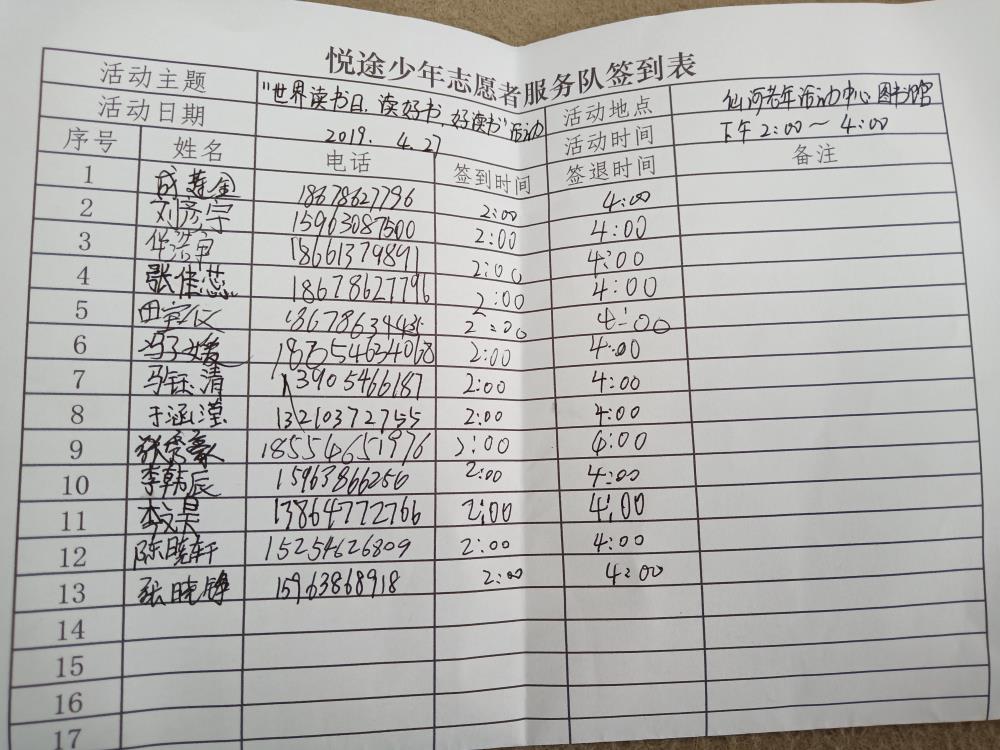 悦途少年志愿者服务队签到表
活动主题 "世界读书日，读好书，好读书"活动 活动地点 仙河老年活动中心图书馆
活动日期 2019. 4.27 活动时间 下午2:00～4:00
序号 姓名 电话 签到时间 签退时间 备注
1 成莲金 18678627796 2:00 4:00
2 刘彦宇 15963087500 2:00 4:00
3 18661379891 2:00 4:00
4 张佳蕊 18678627796 2:00 4:00
5 田宇仪 2:00 4:00
6 冯子媛 2:00 4:00
7 马钰清 13905466187 2:00 4:00
8 于涵滢 13210372755 2:00 4:00
9 18554651976 2:00 4:00
10 李韩辰 15963866256 2:00 4:00
11 13864772766 2:00 4:00
12 陈晓轩 15254626809 2:00 4:00
13 张晓锋 15963868918 2:00 4:00
14
15
16
17